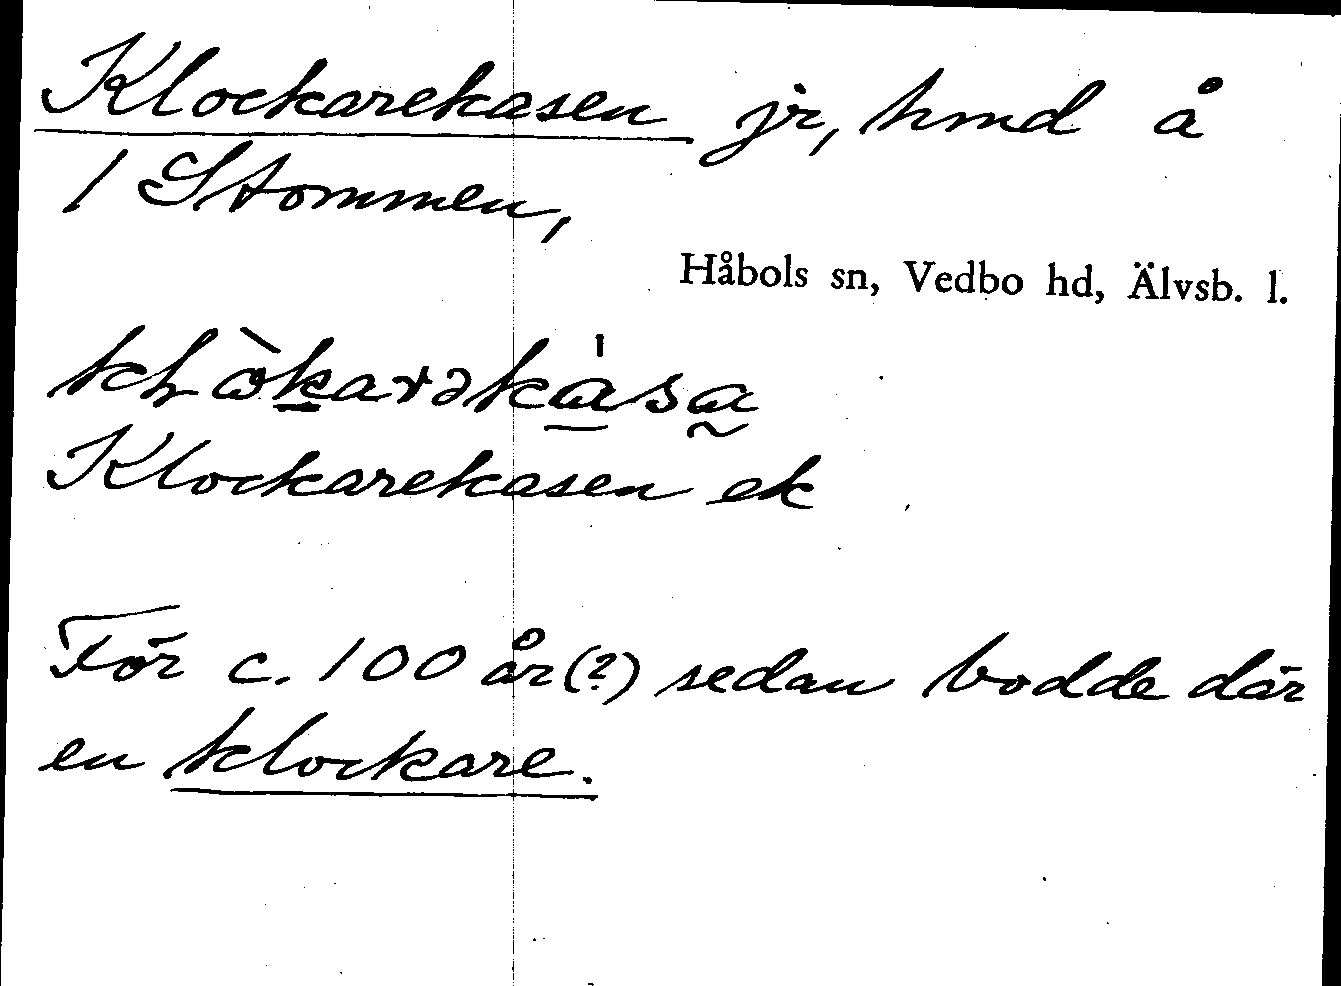 Klockarekasen jr, hmd å
1 Stommen,
Håbols sn, Vedbo hd, Älvsb. l.
Klockarekasen ek
För c. 100 år(?) sedan bodde där
en klockare.